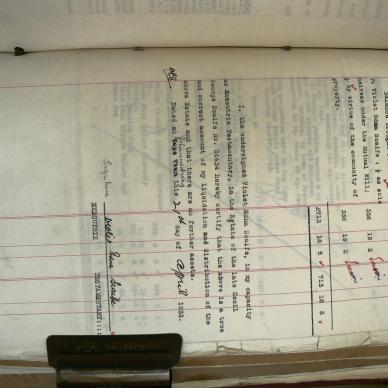 To Violet Edna Scaife: ½ as sole
heiress under the Mutual Will; 356 19 3
½ by virtue of the community of
property. 356 19 2
£713 18 5 713 18 5
I, the undersigned Violet Edna Scaife, in my capacity
as Executrix Testamentary, in the Estate of the late Cecil
George Scaife No. 24434 hereby certify that the above is a true
and correct account of my liquidation and distribution of the
above Estate and that there are no further assets.
Dated at this 21st day of April 1933.
Signature Violet Edna Scaife
EXECUTRIX TESTAMENTARY: